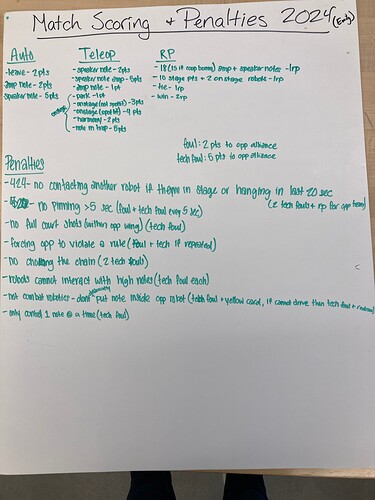 Match Scoring + Penalties 2024 (Early)
Auto
- leave - 2 pts
amp note - 2pts
speaker note - 5pts
Teleop
- speaker note - 2pts
- speaker note amp - 5pts
- amp note - 1pt
- park - 1pt
- onstage (not spotlit) - 3pts
- onstage (spotlit) - 4 pts
- harmony - 2 pts
- note in trap - 5pts
onstage
RP
- 18 (15 if coop bonus) amp + speaker notes - 1rp
- 10 stage pts + 2 onstage robots - 1rp
- tie - 1rp
- win - 2rp
foul: 2 pts to opp alliance
tech foul: 5 pts to opp alliance
Penalties
- no contacting another robot if theyre in stage or hanging in last 20 sec
(2 tech fouls + rp for opp team)
- no pinning >5 sec (foul + tech foul every 5 sec)
- no full court shots (within opp wing) (tech foul)
- forcing opp to violate a rule (foul + tech if repeated)
- no choking the chain (2 tech fouls)
- robots cannot interact with high notes (tech foul each)
- not combat robotics - dont put note inside opp robot (tech foul + yellow card, if cannot drive then tech foul +
- only control 1 note @ a time (tech foul)